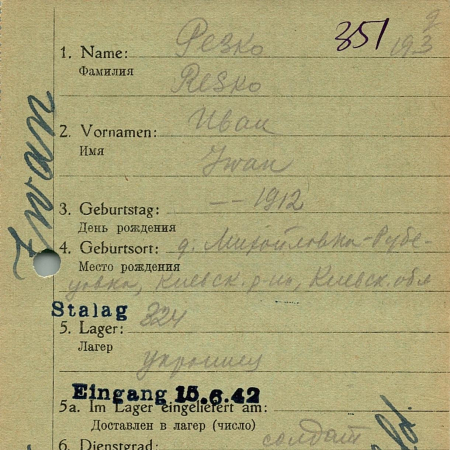 351
193
9
1. Name: Резко
Фамилия
Resko
2. Vornamen: Иван
Имя
Iwan
Iwan
3. Geburtstag: -- 1912
День рождения
4. Geburtsort: д. Михайловка-Рубе-
Место рождения
цовка, Киевск. р-на, Киевск. обл
Stalag
5. Lager: 324
Лагер
украинец
Eingang 15.6.42
5a. Im Lager eingeliefert am:
Доставлен в лагер (число)
6. Dienstgrad: солдат